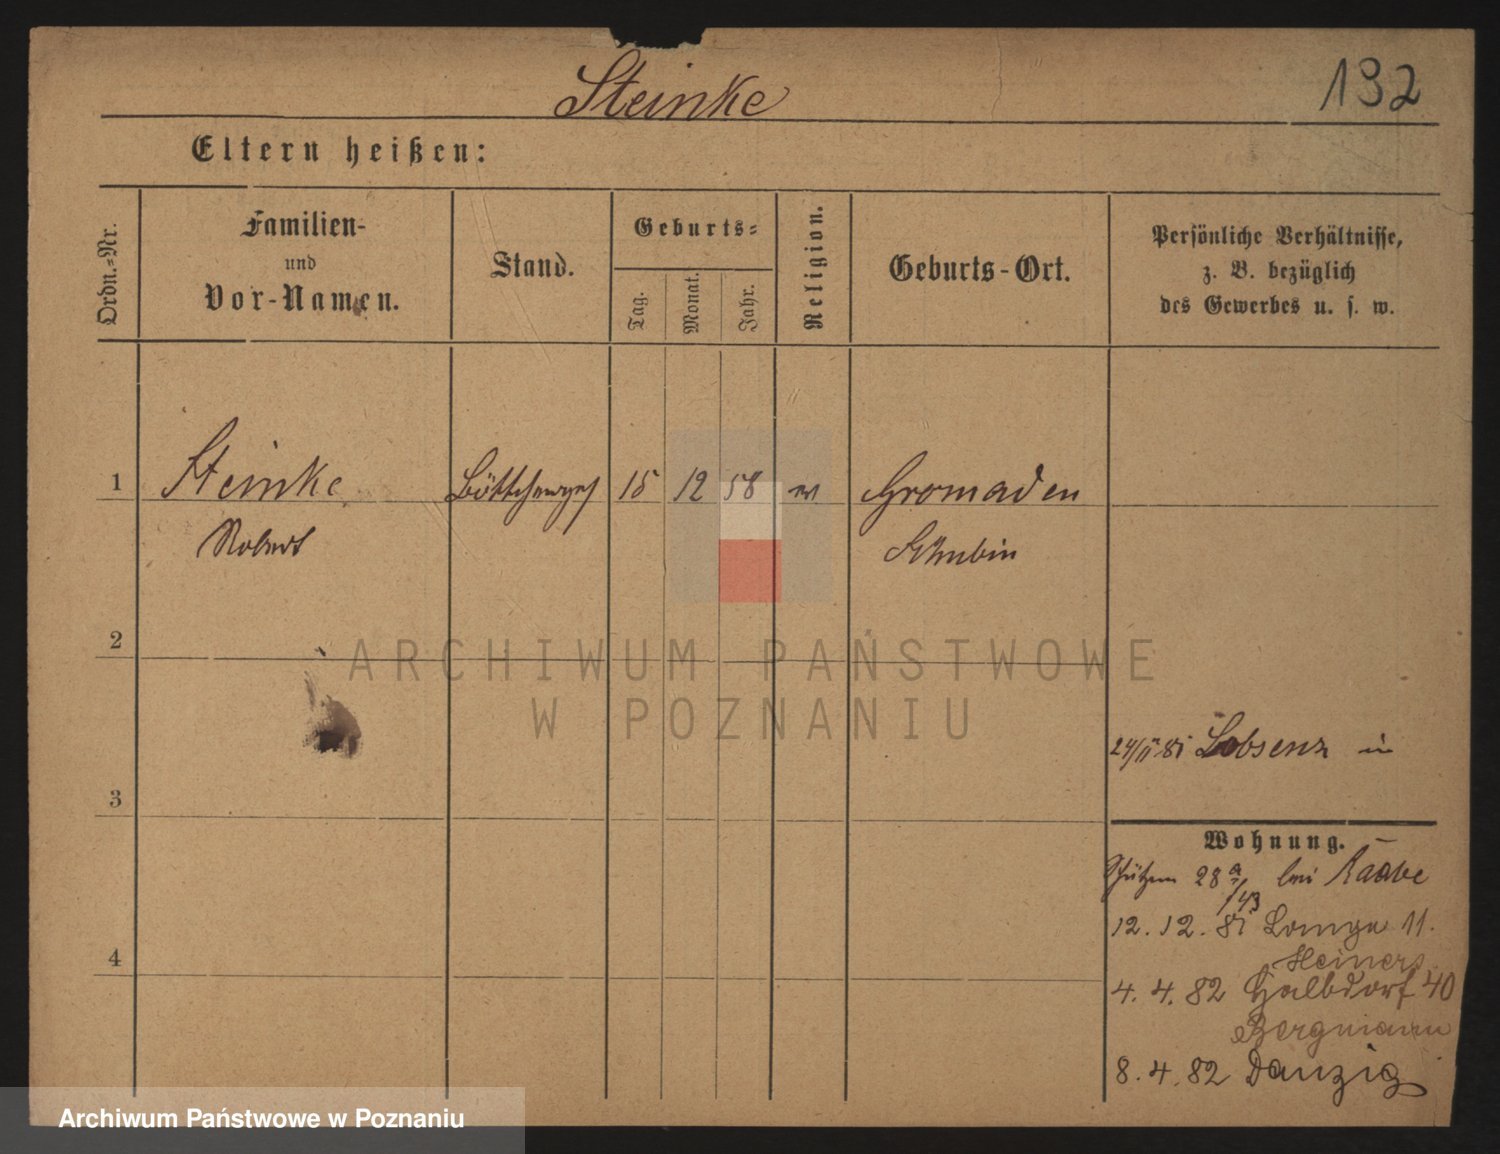 Steinke
132
Eltern heißen:
Ordn.-Nr.
Familien-
und
Vor-Namen.
Stand.
Geburts-
Tag.
Monat.
Jahr.
Religion.
Geburts-Ort.
Persönliche Verhältnisse,
z. B. bezüglich
des Gewerbes u. s. w.
1
Steinke Böttcherges 15 12 58 ev Gromaden
Robert Schubin
2
ARCHIWUM PAŃSTWOWE
W POZNANIU
24/II 81 Lobsenz in
3
Wohnung.
Schützen 28 a bei Raabe
/43
12. 12. 81 Lange 11.
Heiners
4
4. 4. 82 Halbdorf 40
Bergmann
8. 4. 82 Danzig
Archiwum Państwowe w Poznaniu